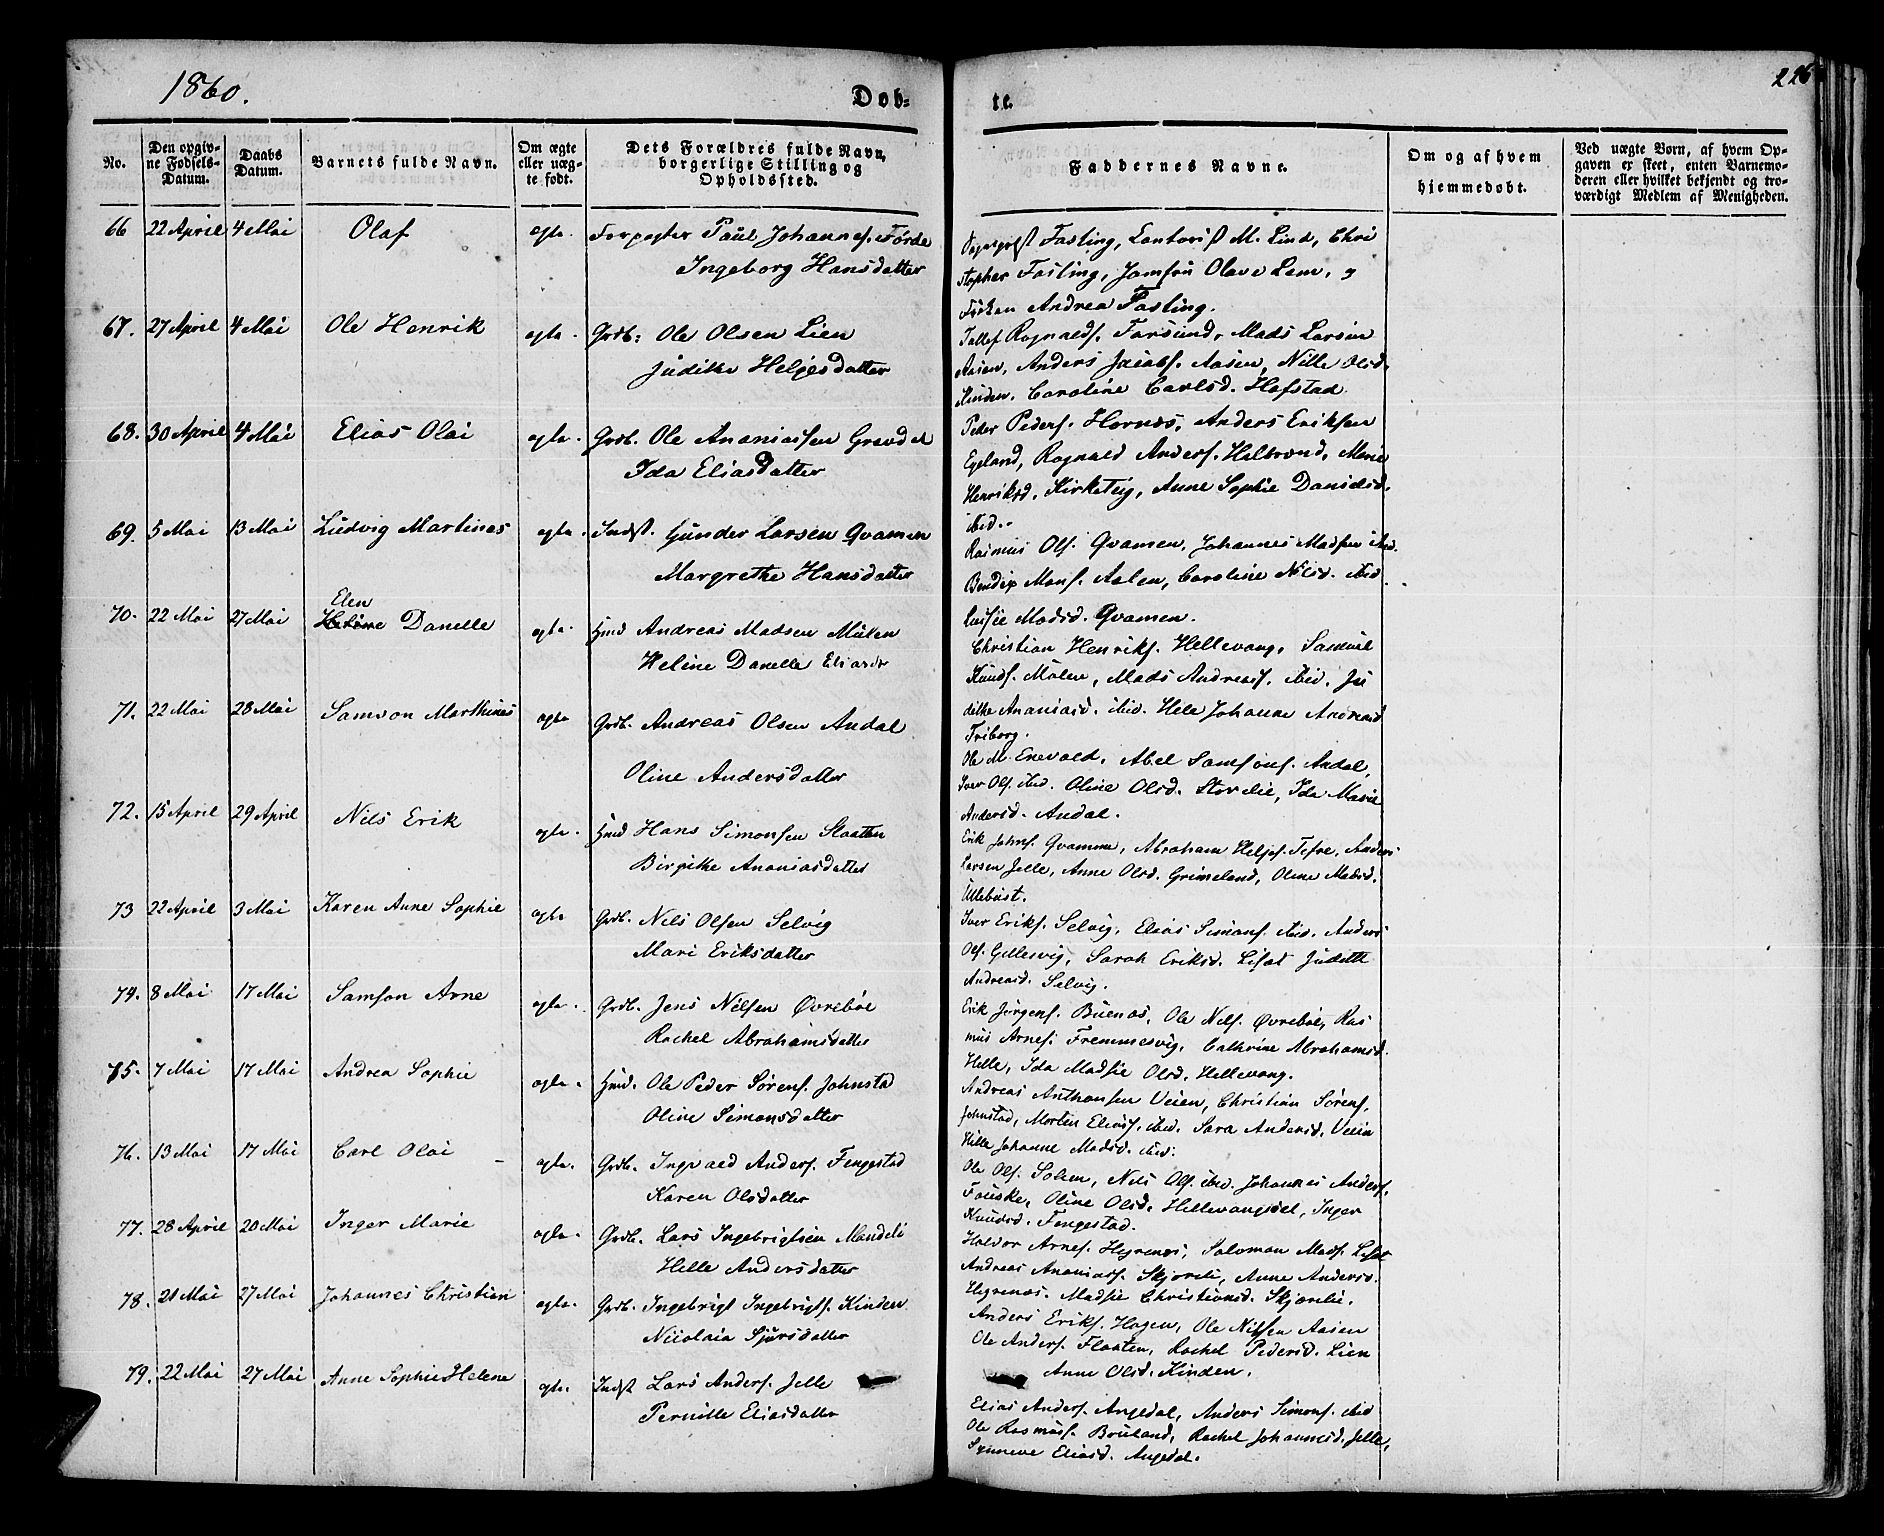 1860.
Døb-
te.
226
No.
Den opgiv-
ne Fødsels-
Datum.
Daabs
Datum.
Barnets fulde Navn.
Om ægte
eller uæg-
te født.
Dets Forældres fulde Navn,
borgerlige Stilling og
Opholdssted.
Faddernes Navne.
Om og af hvem
hjemmedøbt.
Ved uægte Børn, af hvem Op-
gaven er skeet, enten Barnemo-
deren eller hvilket bekjendt og tro-
værdigt Medlem af Menigheden.
66 22 April 4 Mai Olaf ægte. Forpagter Paul Johannes. Förde
Ingeborg Hansdatter
Fasting, Cantorist M. Lind, Chri
stopher Fasting, Jomfru Olave Lem, og
Fröken Andrea Fasting.
67. 27 April 4 Mai Ole Henrik ægte. Grdb: Ole Olsen Lien
Judithe Heljesdatter
Tollef Rognalds. Farsund, Mads Larsen
Aasen, Anders Jacobs. Aasen, Nille Olsd.
Kinden, Caroline Carlsd. Hafstad
68. 30 April 4 Mai Elias Olai ægte. Grdb. Ole Ananiassen Gravdal
Ida Eliasdatter
Peder Peders. Hornæs, Anders Eriksen
Egeland, Rognald Anders. Halbrend, Marie
Henriksd. Kirketeig, Anne Sophie Danielsd.
ibid.
69. 5 Mai 13 Mai Ludvig Martinus ægte. Indst. Gunder Larsen Qvamen
Margrethe Hansdatter
Rasmus Ols. Qvamen, Johannes Madsen ibid.
Bendix Mons. Aalen, Caroline Nilsd. ibid.
Lussie Madsd. Qvamen.
70. 22 Mai 27 Mai Elen
Helene Danelle ægte. Hmd Andreas Madsen Mülen
Helene Danelle Eliasdr
Christian Henriks. Hellevang, Samuel
Knuds. Mülen, Mads Andreass. ibid. Ju
dithe Ananiasd. ibid. Hele Johanne Andreasd
Friborg.
71. 22 Mai 28 Mai Samson Marthinus ægte Grdb. Andreas Olsen Andal
Oline Andersdatter
Ole M. Enevald, Abel Samsons. Andal,
Iver Ols. ibid. Oline Olsd. Storelie, Ida Marie
Andersd. Andal.
72. 15 April 29 April Nils Erik ægte. Hmd Hans Simonsen Slaatten
Birgithe Ananiasdatter
Erik Johns. Qvamme, Abraham Heljes. Tefre, Anders
Larsen Jelle, Anne Olsd. Grimeland, Oline Madsd.
Ullebust.
73 22 April 3 Mai Karen Anne Sophie ægte Grdb. Nils Olsen Selvig
Mari Eriksdatter
Iver Eriks. Selvig, Elias Simons. ibid. Anders
Ols. Gillesvig, Sarah Eriksd. Lisæt Judith
Andreasd. Selvig.
74. 8 Mai 17 Mai Samson Arne ægte. Grdb. Jens Nilsen Øvrebøe
Rachel Abrahamsdatter
Erik Jörgens. Buenæs, Ole Nils. Øvrebøe, Ras
mus Arnes. Fremmesvig, Cathrine Abrahamsd.
Helle, Ida Madsie Olsd. Hellevang.
75. 7 Mai 17 Mai Andrea Sophie ægte. Hmd. Ole Peder Sørens. Johnstad
Oline Simonsdatter
Andreas Anthonsen Veien, Christian Sørens.
Johnstad, Morten Elias. ibid. Sara Andersd. Veien
Hille Johanne Madsd. ibid.
76. 13 Mai 17 Mai Carl Olai - ægte. Grdb. Ingvald Anders. Fengestad
Karen Olsdatter
Ole Ols. Solem, Nils Ols. ibid. Johannes Anders.
Fauske, Oline Olsd. Hellevangsdal, Inger
Knudsd. Fengestad.
77. 28 April 20 Mai Inger Marie ægte. Grdb. Lars Ingebrigtsen Mandeli
Hille Andersdatter
Halvor Arnes. Hegrenæs, Salomon Mads. Lisæt
Andreas Ananiass. Skjærlie, Anne Andersd.
Hegrenæs. Madsie Christiansd. Skjærlie.
78. 21 Mai 27 Mai Johannes Christian ægte. Grdb. Ingebrigt Ingebrigts. Kinden
Nicolaia Sjursdatter
Anders Eriks. Hagen, Ole Nilsen Aasen
Ole Anders. Flaaten, Rachel Pedersd. Lien
Anne Olsd. Kinden.
79. 22 Mai 27 Mai Anne Sophie Helene ægte. Indst Lars Anders. Jelle
Pernille Eliasdatter
Elias Anders. Angedal, Anders Simons. ibid
Ole Rasmus. Bruland, Rachel Johannesd. Jelle,
Synneve Eliasd. Angedal.